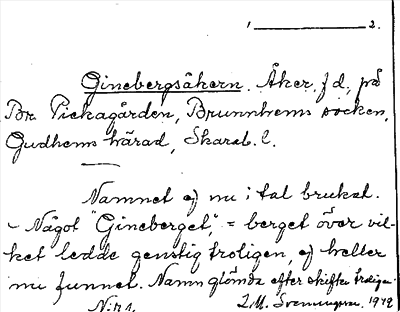 1 2.
Ginebergsåkern. Åker, f d, på
Br. Pickagården, Brunnhems socken,
Gudhems härad, Skarab. l.
Namnet ej nu i tal brukat.
- Något "Gineberget", = berget över vil-
ket ledde genstig troligen, ej heller
nu funnet. Namn glömda efter skiftet troligen.
N:r 1. I.M. Svenungsson. 1942